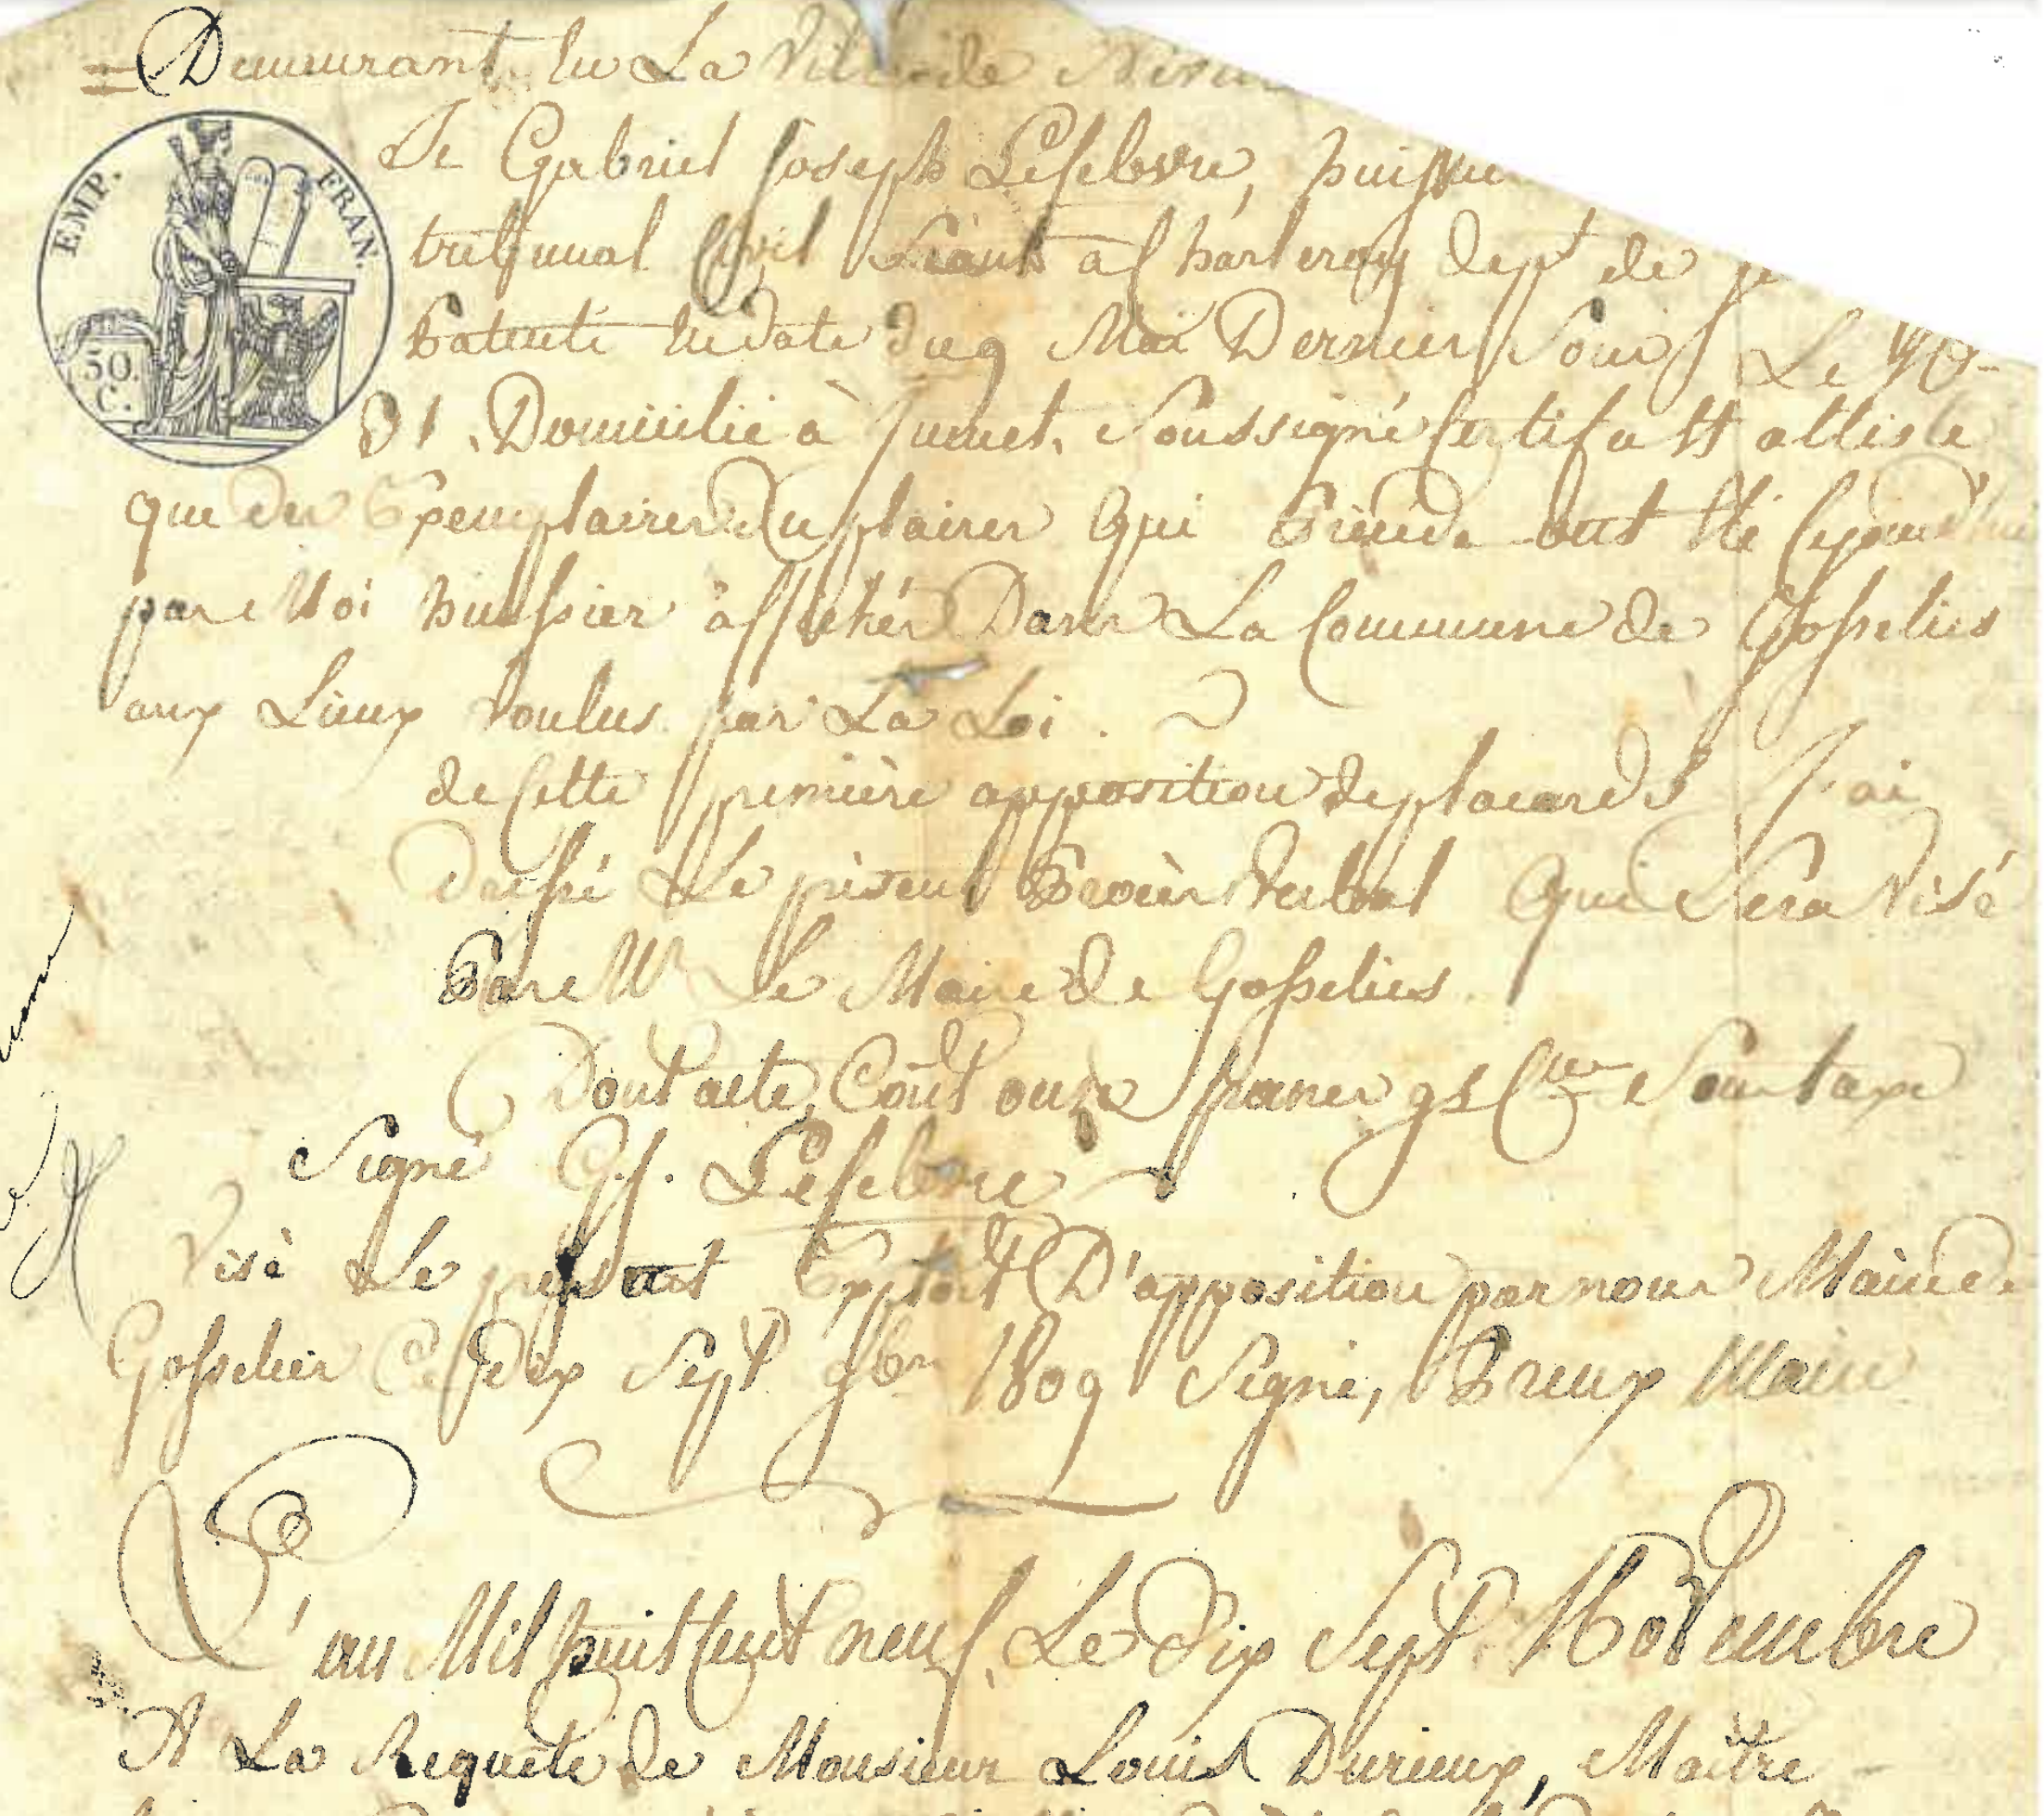 = Demeurant en La Ville de
EMP. FRAN.
50.
C.
Je Gabriel Joseph Lefebvre, huissie
tribunal Civil séant à Charleroy dept de je
Patente en date du 9 Mai Dernier sous Le No
31. Domicilié à Jumet, Soussigné Certifie Et atteste
que des Exemplaires Qui Précède ont été
par Moi huissier affichés Dans La Commune de Gosselies
aux Lieux Voulus par La Loi.
de Cette première apposition de placards J'ai
dressé Le présent Procès Verbal Qui Sera Visé
Par Mr Le Maire de Gosselies
Dont acte, Coût onze francs 95 Cmes Sauf taxe
Signé G. J. Lefebvre
Visé Le présent Exploit D'apposition par nous Maire de
Gosselies Ce Dix Sept 9bre 1809 Signé, Preux Maire
L'an Mil huit Cent neuf, Le Dix Sept Novembre
A La Requête de Monsieur Louis Durieux, Maître